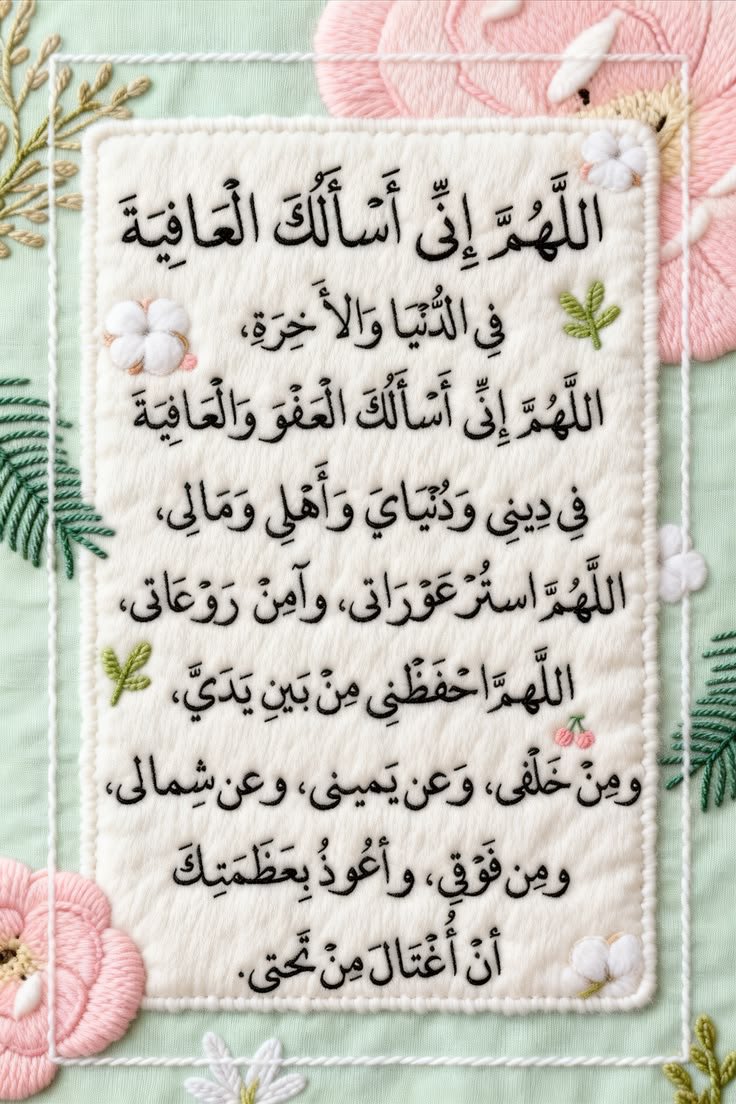 اللَّهُمَّ إِنِّي أَسْأَلُكَ الْعَافِيَةَ
فِي الدُّنْيَا وَالأَخِرَةِ،
اللَّهُمَّ إِنِّي أَسْأَلُكَ الْعَفْوَ وَالْعَافِيَةَ
فِي دِينِي وَدُنْيَايَ وَأَهْلِي وَمَالِي،
اللَّهُمَّ اسْتُرْ عَوْرَاتى، وآمِنْ رَوْعَاتى،
اللَّهمَّ احْفَظْنِى مِنْ بَينِ يَدَيَّ،
ومِنْ خَلْفى، وَعن يَمينى، وعن شِمالى،
ومِن فَوْقِي، وأعُوذُ بِعَظَمَتِكَ
أنْ أُغْتَالَ مِنْ تَحتى.